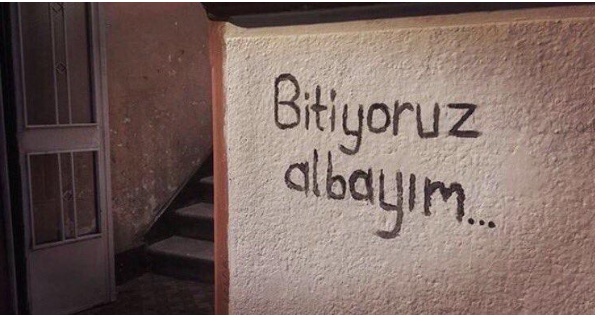 Bitiyoruz
albayım...